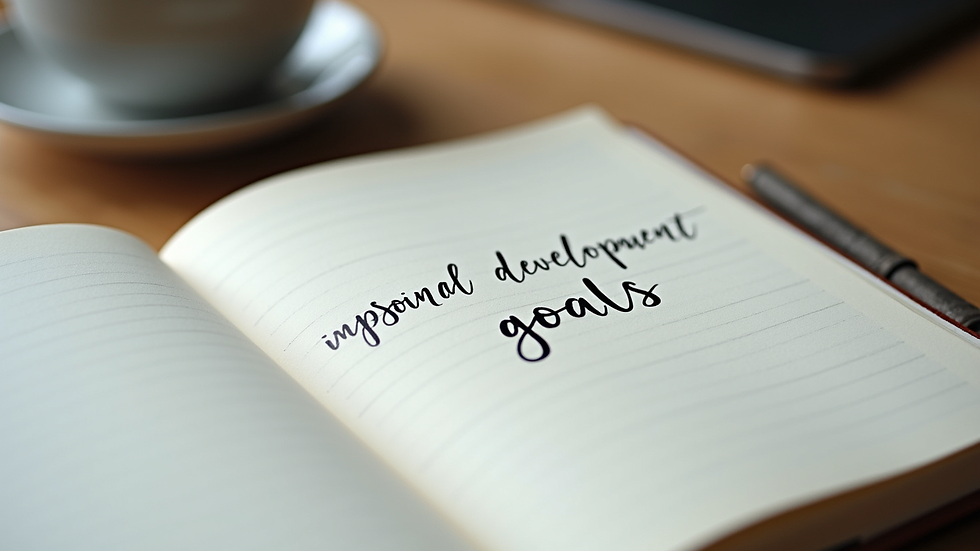 impsoinal development
goals